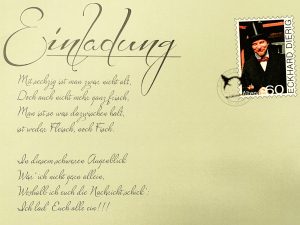 Einladung
ECKHARD DIERIG
60
Mit sechzig ist man zwar nicht alt,
Doch auch nicht mehr ganz frisch,
Man ist so was dazwischen halt,
ist weder Fleisch, noch Fisch.
In diesem schweren Augenblick
Wär' ich nicht gern allein,
Weshalb ich euch die Nachricht schick':
Ich lad' Euch alle ein!!!